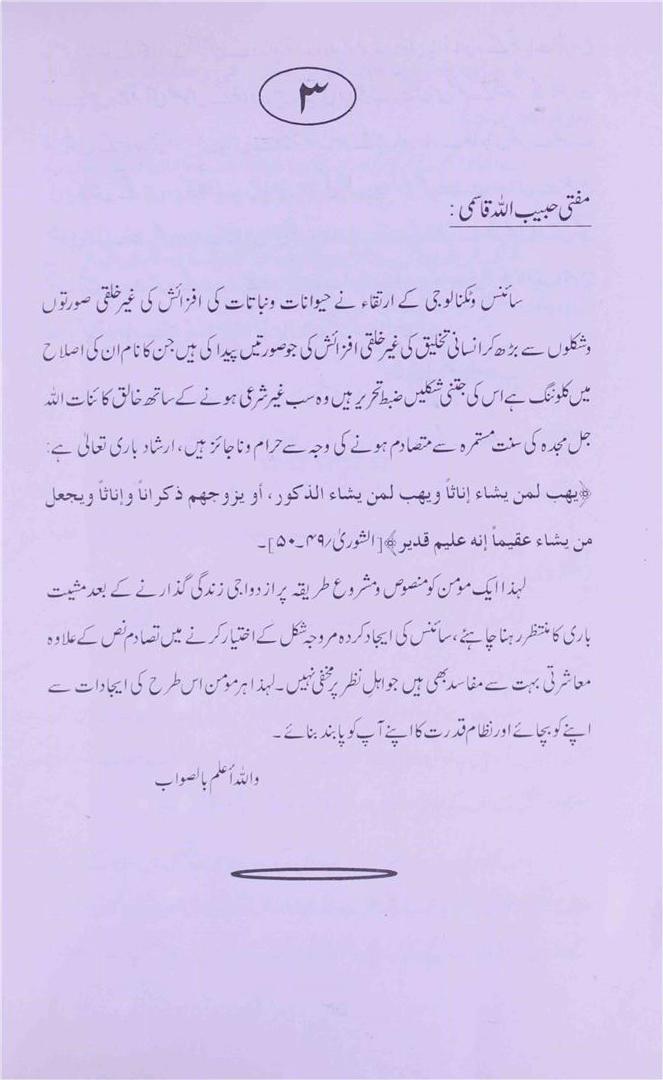 ۳
مفتی حبیب اللہ قاسمی :
سائنس وٹکنالوجی کے ارتقاء نے حیوانات ونباتات کی افزائش کی غیر خلقی صورتوں
وشکلوں سے بڑھ کر انسانی تخلیق کی غیر خلقی افزائش کی جو صورتیں پیدا کی ہیں جن کا نام ان کی اصلاح
میں کلوننگ ہے اس کی جتنی شکلیں ضبط تحریر ہیں وہ سب غیر شرعی ہونے کے ساتھ خالق کائنات اللہ
جل مجدہ کی سنت مستمرہ سے متصادم ہونے کی وجہ سے حرام وناجائز ہیں، ارشاد باری تعالیٰ ہے:
﴿يهب لمن يشاء إناثاً ويهب لمن يشاء الذكور، أو يزوجهم ذكراناً وإناثاً ويجعل
من يشاء عقيماً إنه عليم قدير﴾ [الشوریٰ/۴۹۔۵۰]۔
لہذا ایک مومن کو منصوص ومشروع طریقہ پر ازدواجی زندگی گذارنے کے بعد مشیت
باری کا منتظر رہنا چاہئے، سائنس کی ایجاد کردہ مروجہ شکل کے اختیار کرنے میں تصادم نص کے علاوہ
معاشرتی بہت سے مفاسد بھی ہیں جو اہل نظر پر مخفی نہیں۔ لہذا ہر مومن اس طرح کی ایجادات سے
اپنے کو بچائے اور نظام قدرت کا اپنے آپ کو پابند بنائے۔
واللہ أعلم بالصواب